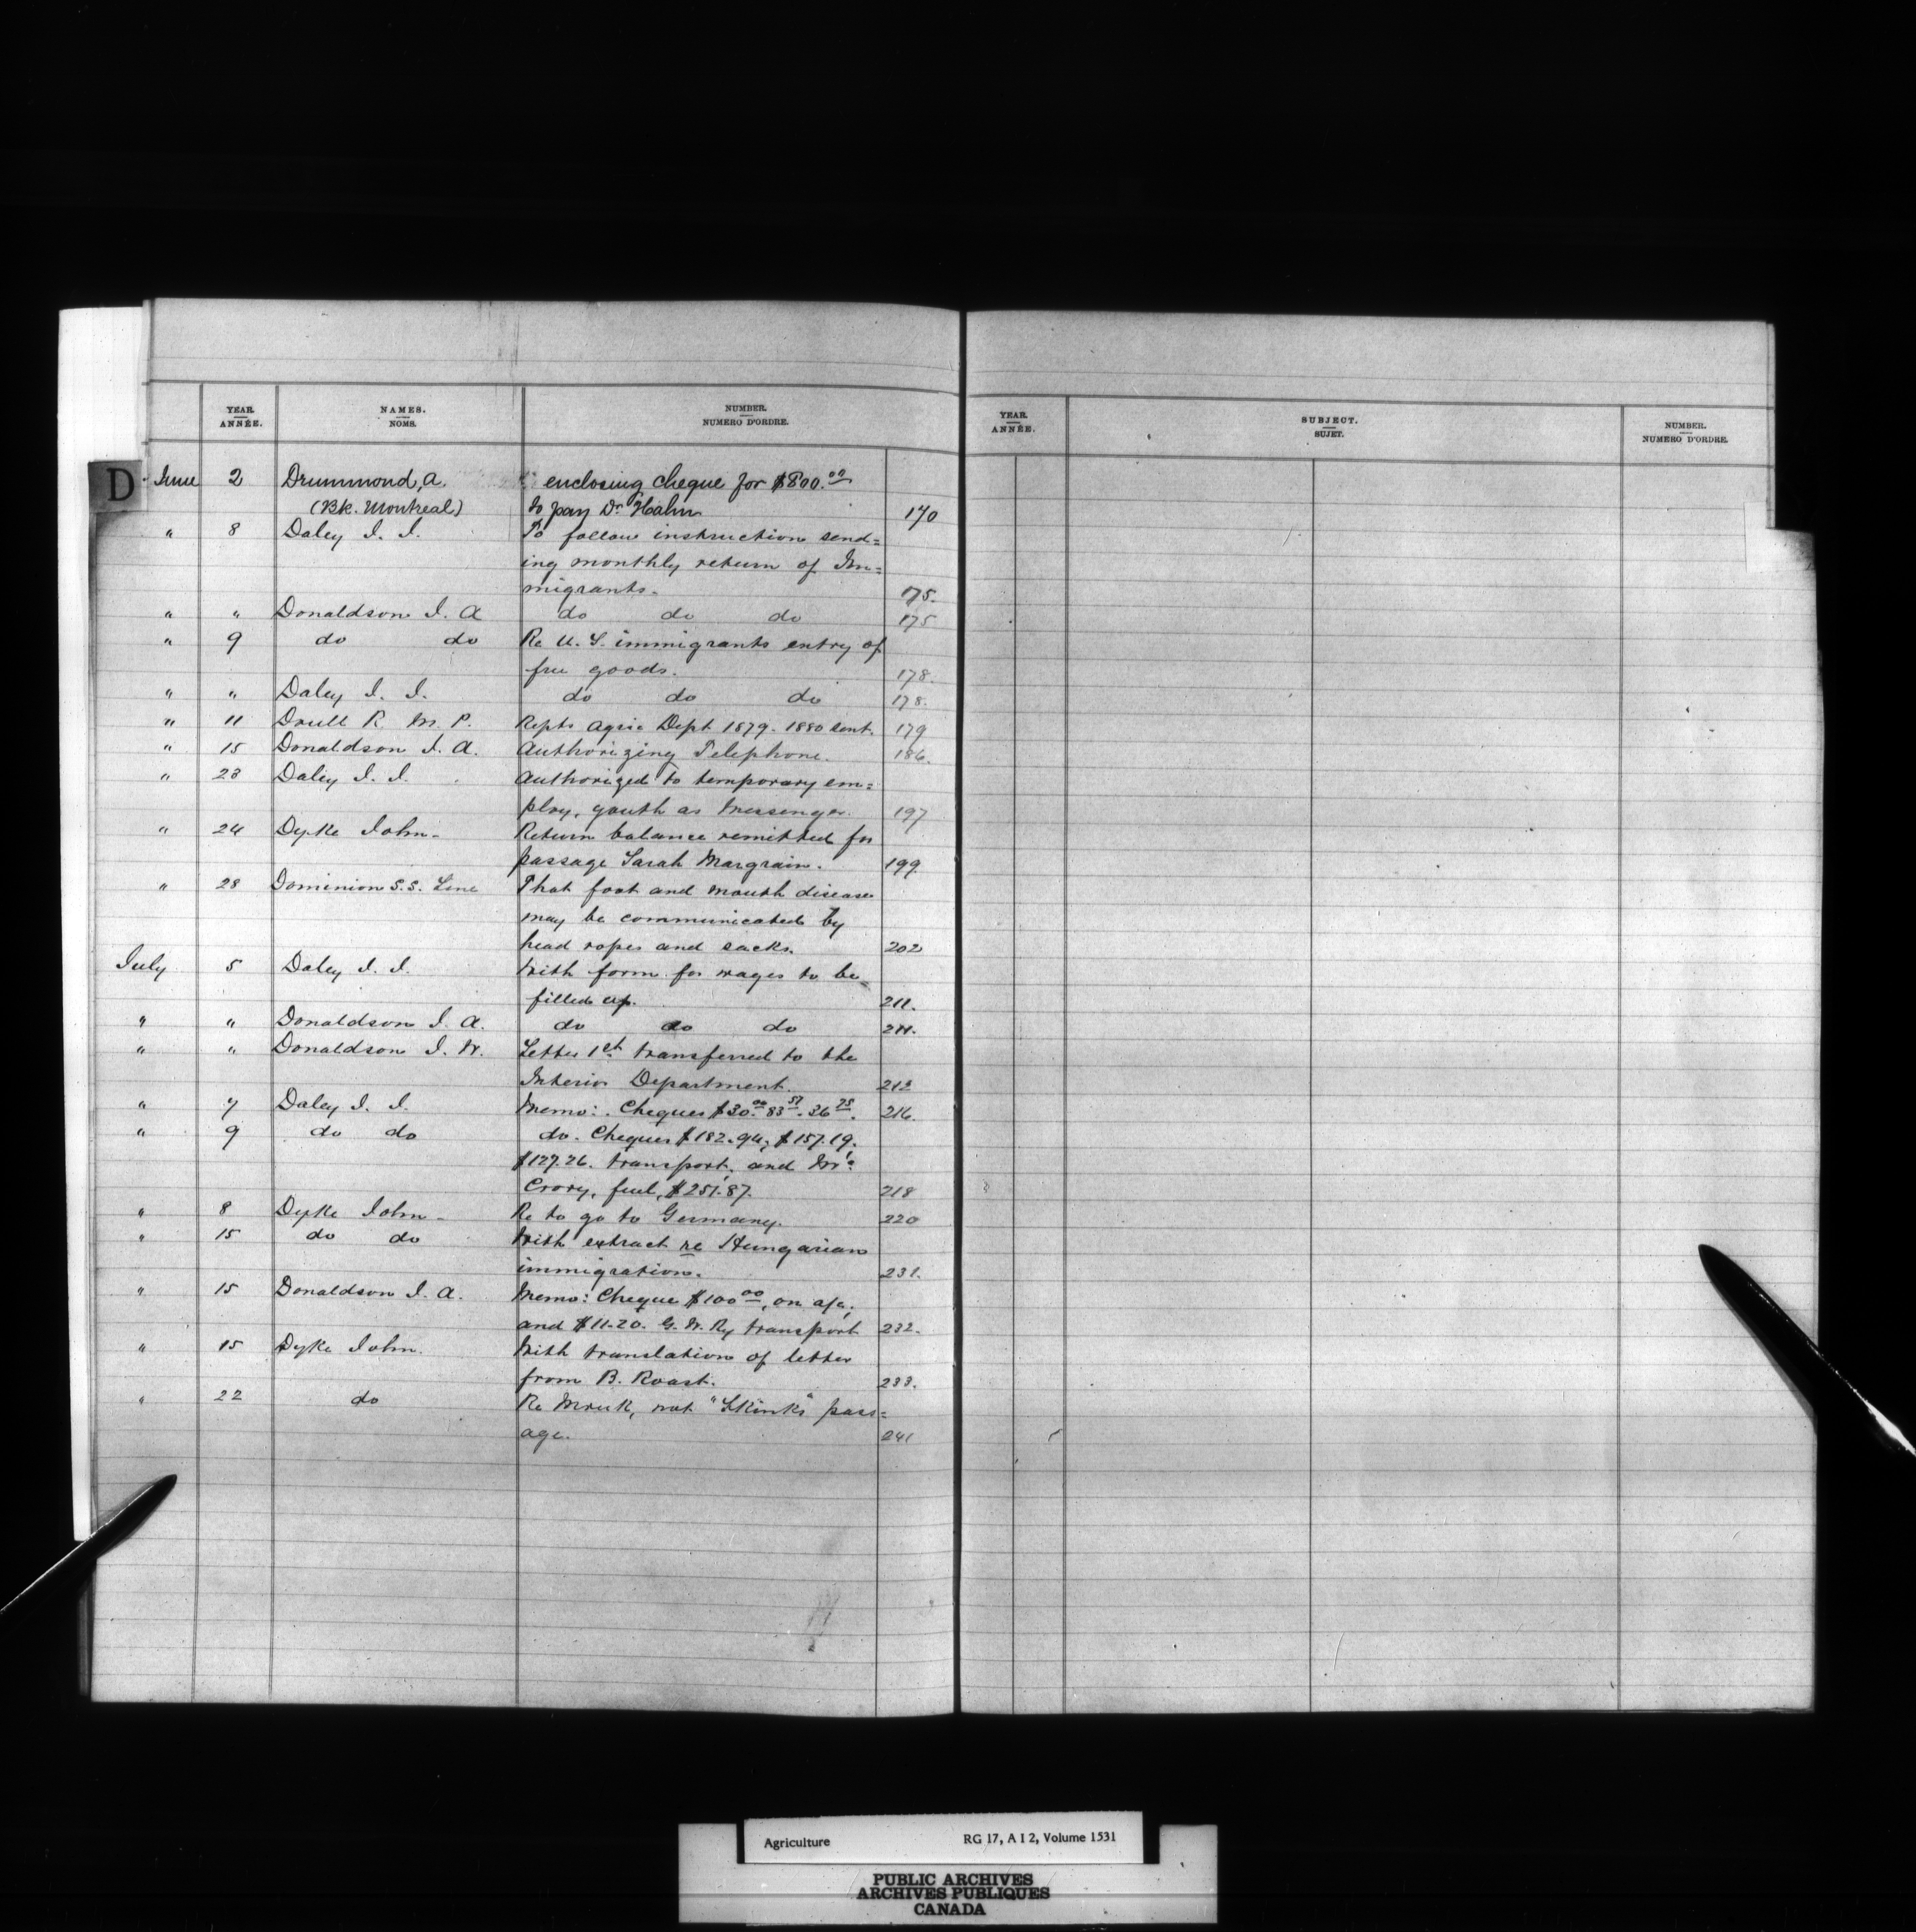 YEAR. NAMES. NUMBER.
ANNÉE. NOMS. NUMERO D'ORDRE.
D June 2 Drummond, A. enclosing cheque for $800.00
(Bk. Montreal) to pay Dr. Hahn 170
" 8 Daley J. J. To follow instruction send=
ing monthly return of Im=
migrants. 175.
" " Donaldson J. A do do do 175
" 9 do do Re U. S. immigrants entry of
free goods. 178.
" " Daley J. J. do do do 178.
" 11 R. M. P. Repts Agric Dept 1879. 1880 sent. 179
" 15 Donaldson J. A. Authorizing Telephone. 186.
" 23 Daley J. J. Authorized to temporary em=
ploy, youth as Messenger. 197
" 24 Dyke John - Return balance remitted for
passage Sarah Margrain. 199
" 28 Dominion S.S. Line That foot and mouth disease
may be communicated by
head ropes and sacks. 202
July 5 Daley J. J. With form for wages to be
filled up. 211.
" " Donaldson J. A. do do do 211.
" " Donaldson J. W. Letter 1st transferred to the
Interior Department. 212
" 7 Daley J. J. Memo: Cheques $30.00 83 57. 36 75. 216.
" 9 do do do. Cheques $182.94; $157.19.
$127.26. transport, and Mc
Crory, fuel, $251.87. 218
" 8 Dyke John - Re to go to Germany. 220
" 15 do do With extract re Hungarian
immigration. 231.
" 15 Donaldson J. A. Memo: Cheque $100 00, on a/c,
and $11.20. G. W. Ry transport 232.
" 15 Dyke John. With translation of letter
from B. Roast. 233.
" 22 do Re Mruk, not "Skinks" pass=
age. 241
YEAR. SUBJECT. NUMBER.
ANNÉE. SUJET. NUMERO D'ORDRE.
Agriculture RG 17, A I 2, Volume 1531
PUBLIC ARCHIVES
ARCHIVES PUBLIQUES
CANADA